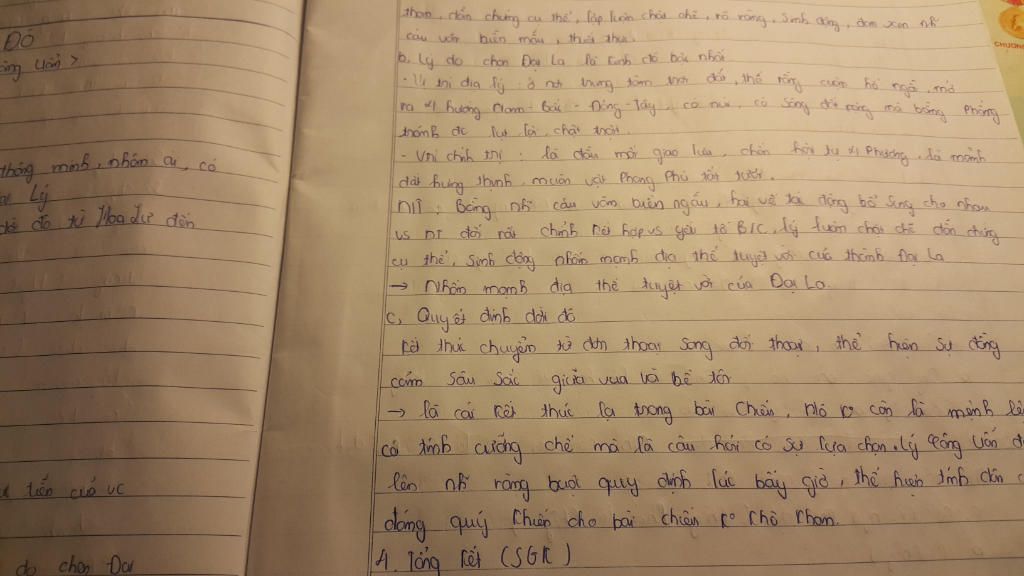 Đô
thông minh, nhân ái, có
Lý
đô từ Hoa Lư đến
tiễn của vc
do chọn Đại
CHƯƠNG
dẫn chứng cụ thể, lập luận chặt chẽ, rõ ràng, sinh động, đan xen nh~
câu văn biền mẫu,
b. Lý do chọn Đại La là kinh đô bậc nhất
- Vị trí địa lý: ở nơi trung tâm trời đất, thế rồng cuộn hổ ngồi, mở
ra 4 hướng Nam - Bắc - Đông - Tây, có núi, có sông đất rộng mà bằng phẳng
tránh đc lụt lội, chật chội.
- Vtrí chính trị: là đầu mối giao lưu, chốn hội tụ 4 phương, là mảnh
đất hưng thịnh, muôn vật phong phú tốt tươi.
NT: Bằng nh~ câu văn biền ngẫu, hai vế tác động bổ sung cho nhau
vs NT đối rất chỉnh kết hợp vs yếu tố B/C, lý luận chặt chẽ dẫn chứng
cụ thể, sinh động nhấn mạnh địa thế tuyệt vời của thành Đại La
→ Nhấn mạnh địa thế tuyệt vời của Đại La.
c, Quyết định dời đô
Kết thúc chuyển từ đơn thoại sang đối thoại, thể hiện sự đồng
cảm sâu sắc giữa vua và bề tôi
→ là cái kết thúc lạ trong bài Chiếu, Nó ko còn là mệnh lện
có tính cưỡng chế mà là câu hỏi có sự lựa chọn. Lý Công Uẩn đ
lên nh~ ràng buộc quy định lúc bấy giờ, thể hiện tính dân c
đáng quý khiến cho bài chiếu ko khô khan.
4. Tổng kết (SGK)